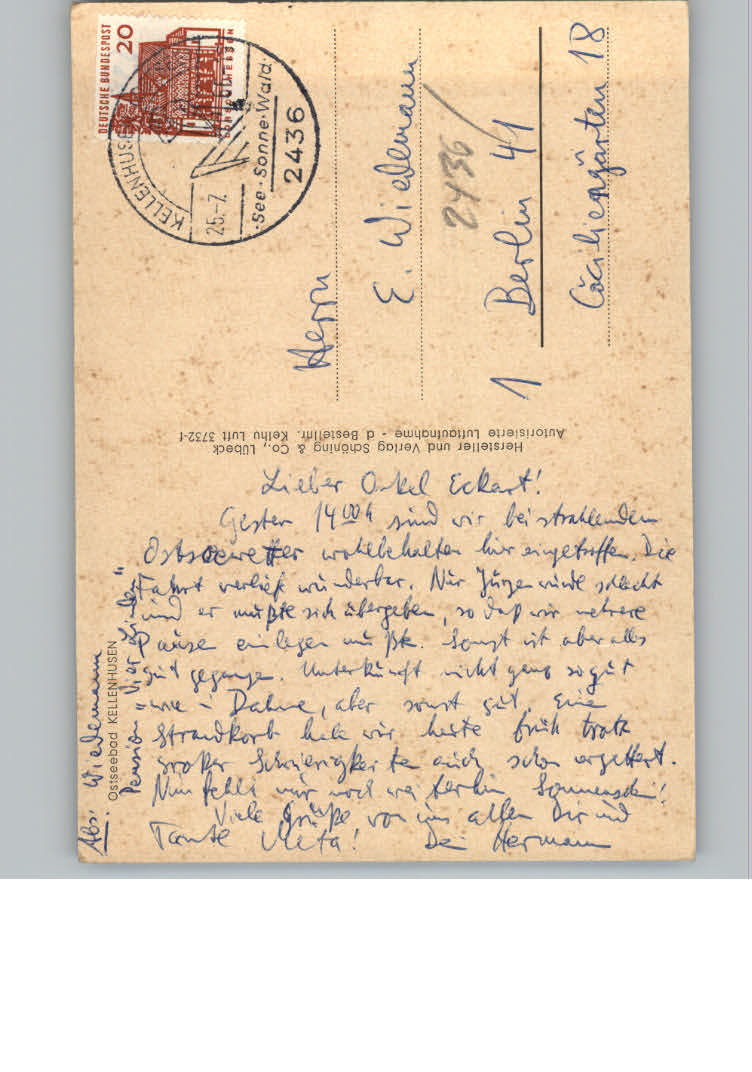 DEUTSCHE BUNDESPOST
20
KELLENHUSEN
25.-7.
See·Sonne·Wald
2436
Herrn
E. Wiedemann
2436
1 Berlin 41
Cäciliengärten 18
Hersteller und Verlag Schöning & Co., Lübeck
Autorisierte Luftaufnahme - d Bestellnr. Kelhu Luft 3732-f
Lieber Onkel Eckart!
Gestern 14 00 h sind wir bei strahlendem
Ostseewetter wohlbehalten hier eingetroffen. Die
Fahrt verlief wunderbar. Nur Jürgen wurde schlecht
und er mußte sich übergeben, so daß wir mehrere
Pausen einlegen mußten. Sonst ist aber alles
gut gegangen. Unterkunft nicht ganz so gut
wie in Dahme, aber sonst gut. Eine
Strandkorb habe wir heute früh trotz
großer Schwierigkeiten auch schon ergattert.
Nun fehlt nur noch weiterhin Sonnenschein!
Viele Grüße von uns allen Dir und
Tante Meta! Dein Hermann
Abs: Wiedemann
Ostseebad KELLENHUSEN
Pension "Vier Linden"